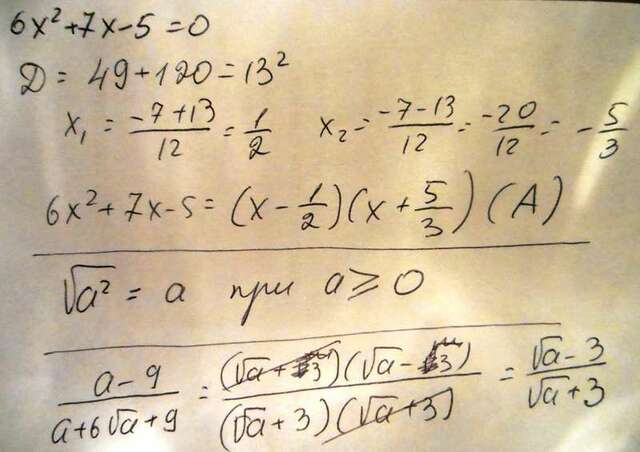 6x²+7x-5=0
D = 49+120=13²
x₁ = (-7+13)/12 = 1/2 x₂ = (-7-13)/12 = -20/12 = -5/3
6x²+7x-5=(x-1/2)(x+5/3) (A)
√a² = a при a≥0
(a-9)/(a+6√a+9) = ((√a+3)(√a-3))/((√a+3)(√a+3)) = (√a-3)/(√a+3)